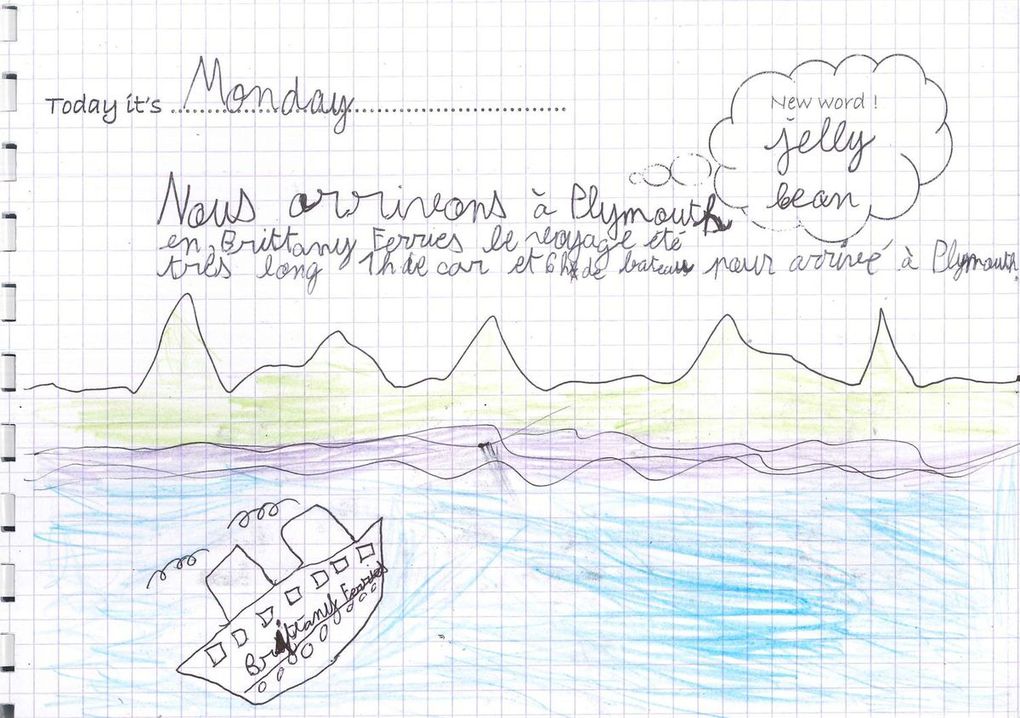 Today it's Monday
New word !
jelly
bean
Nous arrivons à Plymouth
en Brittany Ferries le voyage été
très long 1h de car et 6h de bateau pour arrivé à Plymouth.
Brittany Ferries